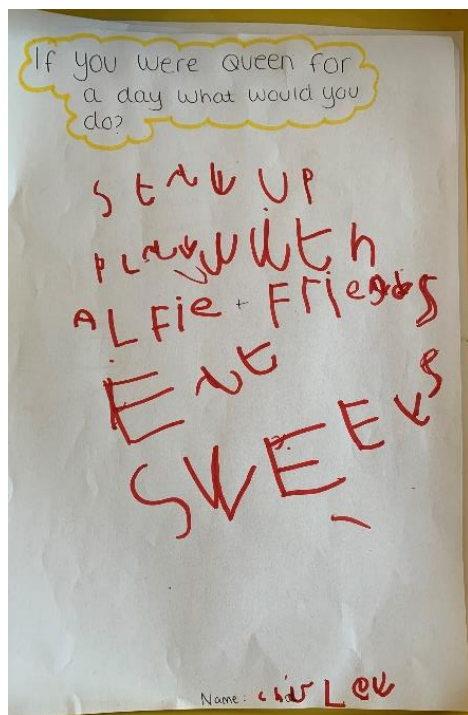 If you were Queen for
a day what would you
do?
STAY UP
PLAY WITh
ALFie + FRieNdS
EAt
SWEEtS
Name: ChARLeY